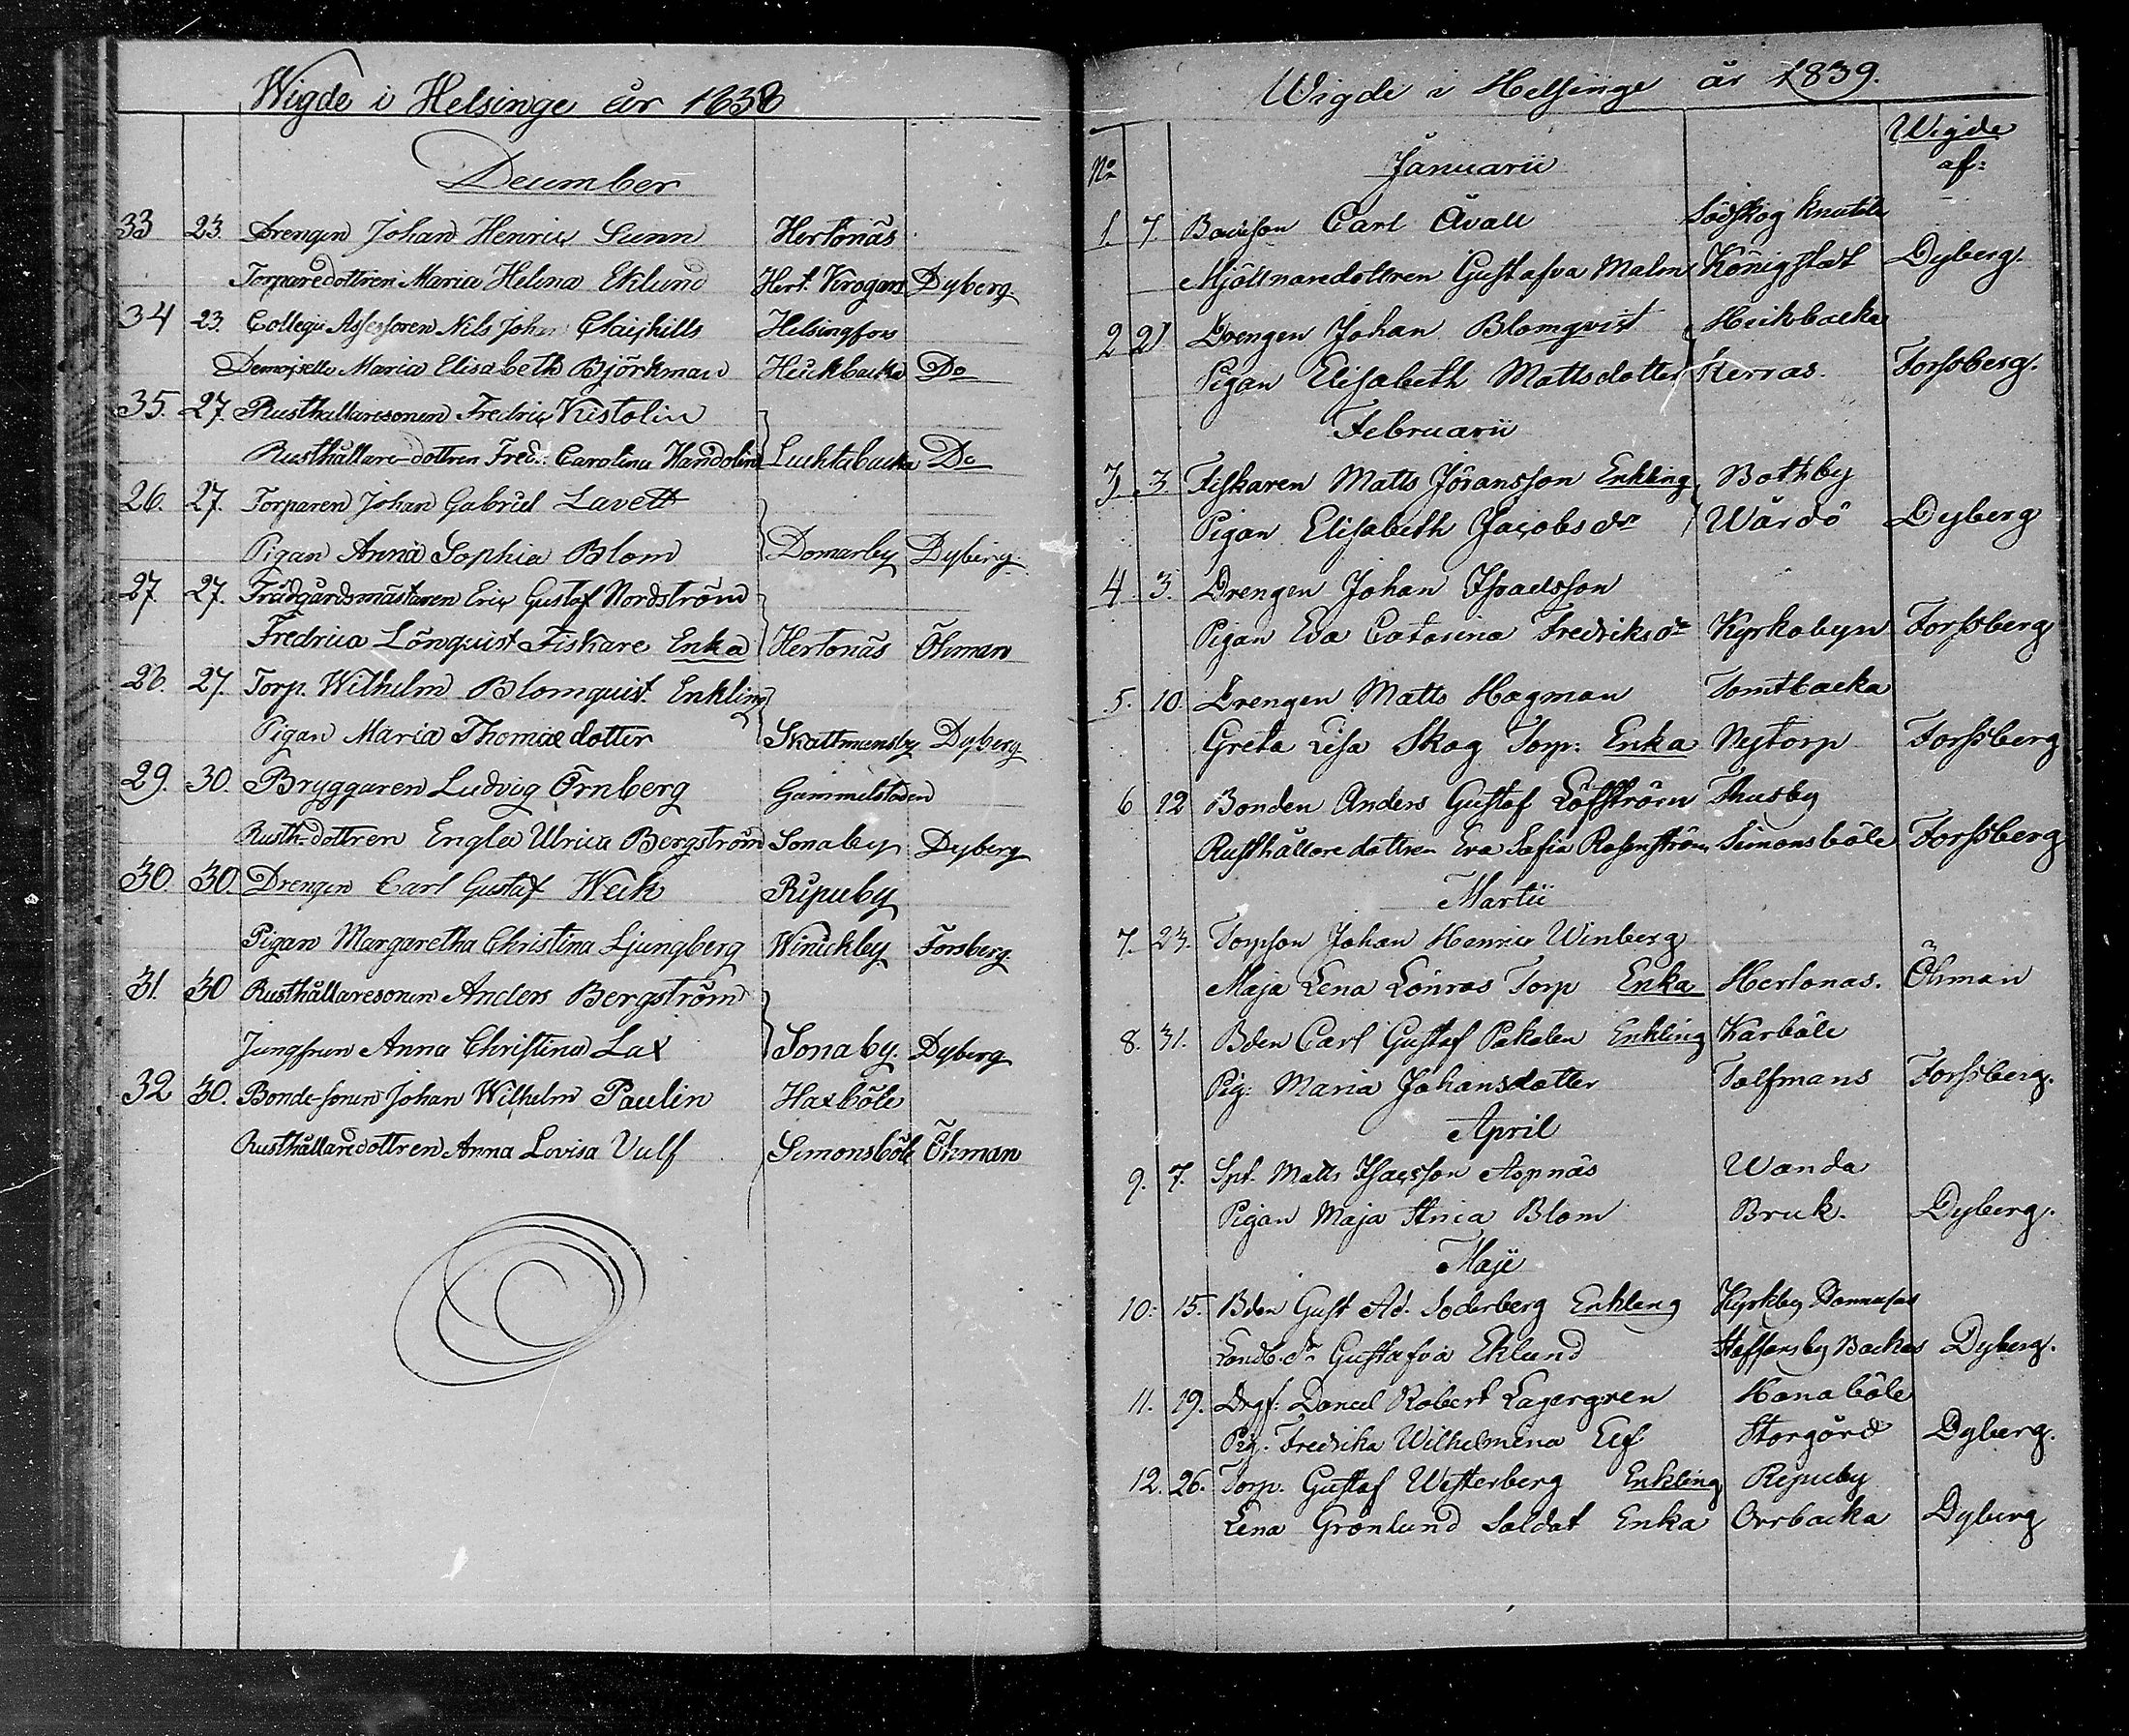 Wigde i Helsinge år 1838
December
33 23. Drengen Johan Henric Sunn Hertonäs
Torparedottren Maria Helena Eklund Hert. Krogars Dyberg
34 23. Collegii Assessoren Nils Johan Helsingfors
Demoiselle Maria Elisabeth Björkman Heickbacka Do
35. 27. Rusthållaresonen Fredric Kistolin
Rusthållare-dottren Fred. Carolina Handolin Luchtabacka Do
26. 27. Torparen Johan Gabriel Lavett
Pigan Anna Sophia Blom Domarby Dyberg.
27. 27. Trädgårdsmästaren Eric Gustaf Nordström
Fredrica Lönquist Fiskare Enka Hertonäs Öhman
28. 27. Torp. Wilhelm Blomquist. Enkling
Pigan Maria Thomædotter Skattmansby Dyberg
29. 30. Bryggaren Ludvig Örnberg Gammelstaden
Rusth-dottren Engla Ulrica Bergström Sonaby Dyberg
30 30. Drengen Carl Gustaf Weck Ripuby
Pigan Margaretha Christina Ljungberg Winickby Forsberg.
31. 30 Rusthållaresonen Anders Bergström
Jungfrun Anna Christina Lax Sonaby. Dyberg
32 30. Bonde-sonen Johan Wilhelm Paulin Haxböle
Rusthållaredottren Anna Lovisa Vulf Simonsböle Öhman
Wigde i Helsinge år 1839.
No Januarii Wigde af:
1. 7. Bondson Carl Åvall Sodskog Knutila
Mjöllnaredottren Gustafva Malm Königstedt Dyberg
2 21 Drengen Johan Blomqvist Heikbacka
Pigan Elisabeth Mattsdotter Kerras. Forssberg.
Februarii
3 3. Fiskaren Matts Jöransson Enkling Bothby
Pigan Elisabeth Jacobsdr Wärdö Dyberg
4 3. Drengen Johan Israelsson
Pigan Eva Catarina Fredriksdr Kyrkobyn Forssberg
5. 10. Drengen Matts Hagman Tomtbacka
Greta Lisa Skog Torp: Enka Nytorp Forssberg
6 12 Bonden Anders Gustaf Löfström Thusby
Rusthållaredottren Eva Sofia Rosenström Simonsböle Forssberg
Martii
7. 23. Torpson Johan Henric Winberg
Maja Lena Lönros Torp Enka Hertonas. Öhman
8. 31. Bden Carl Gustaf Pakalen Enkling Karböle
Pig: Maria Johansdotter Tolfmans Forssberg.
April
9. 7. Spt. Matts Isacsson Aspnäs Wanda
Pigan Maja Stina Blom Bruk. Dyberg.
Maji
10: 15. Bden Gust Ad. Soderberg Enkling Kyrkby
Landb. dr Gustafva Eklund Staffansby Backas Dyberg.
11. 19. Drgf: Daniel Robert Lagergren Hanaböle
Pig. Fredrika Wilhelmina Elf Storgård Dyberg.
12. 26. Torp. Gustaf Westerberg Enkling Ripuby
Lena Grönlund Soldat Enka Orrbacka Dyberg